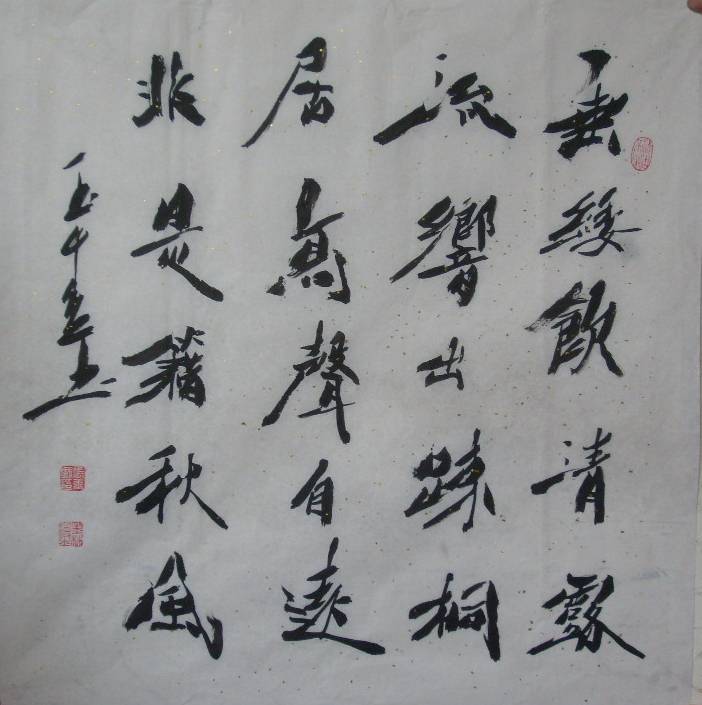 垂緌飲清露
流響出踈桐
居高聲自遠
非是籍秋風